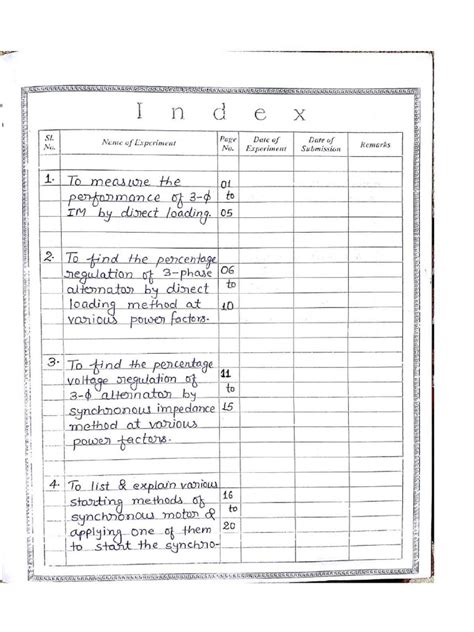 Index
Sl. No. Name of Experiment Page No. Date of Experiment Date of Submission Remarks
1. To measure the 01
performance of 3-ϕ to
IM by direct loading. 05
2. To find the percentage
regulation of 3-phase 06
alternator by direct to
loading method at 10
various power factors.
3. To find the percentage
voltage regulation of 11
3-ϕ alternator by to
synchronous impedance 15
method at various
power factors.
4. To list & explain various
starting methods of 16
synchronous motor & to
applying one of them 20
to start the synchro-